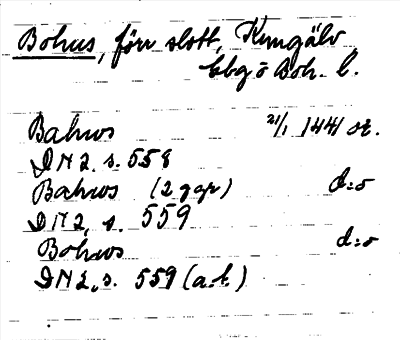 Bohus, förr slott, Kungälv
Gbg o Boh. l.
Bahws 21/1 1441 or.
DN 2, s. 558
Bahws (2 ggr) d:o
DN 2, s. 559
Bohws d:o
DN 2, s. 559 (a.t.)